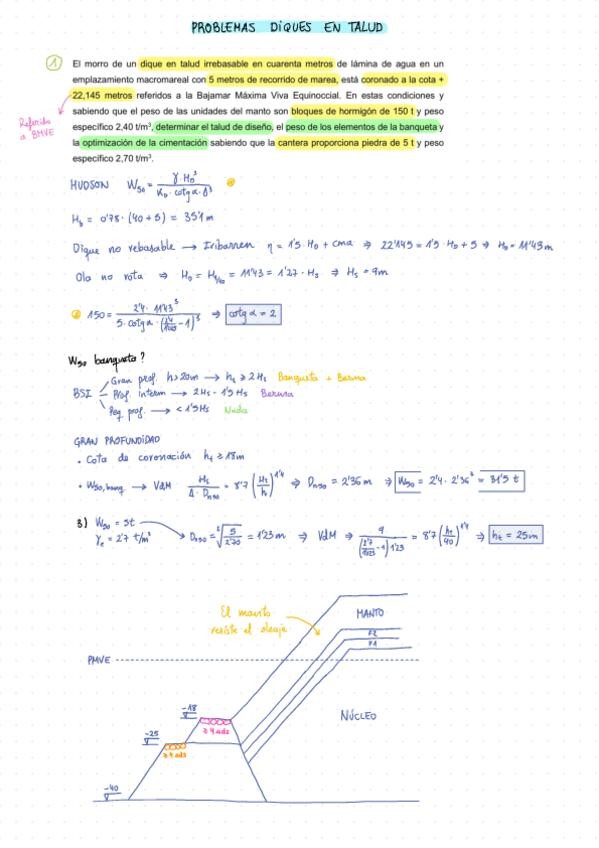 PROBLEMAS DIQUES EN TALUD
1
El morro de un dique en talud irrebasable en cuarenta metros de lámina de agua en un
emplazamiento macromareal con 5 metros de recorrido de marea, está coronado a la cota +
22,145 metros referidos a la Bajamar Máxima Viva Equinoccial. En estas condiciones y
sabiendo que el peso de las unidades del manto son bloques de hormigón de 150 t y peso
específico 2,40 t/m³, determinar el talud de diseño, el peso de los elementos de la banqueta y
la optimización de la cimentación sabiendo que la cantera proporciona piedra de 5 t y peso
específico 2,70 t/m³.
Referido a BMVE
HUDSON W50 = γ · HD³ / KD · cotg α · Δ³
Hb = 0'78 · (40 + 5) = 35'1 m
Dique no rebasable → Iribarren η = 1'5 · HD + cma ⇒ 22'145 = 1'5 · HD + 5 ⇒ HD = 11'43 m
Ola no rota ⇒ HD = H1/10 = 11'43 = 1'27 · Hs ⇒ Hs = 9m
150 = 2'4 · 11'43³ / 5 · cotg α · (2'4/1'025 - 1)³ ⇒ cotg α = 2
W50 banqueta?
BSI
Gran prof. h > 20m → ht ≥ 2Hs Banqueta + Berma
Prof. interm → 2Hs - 1'5 Hs Berma
Peq prof. → < 1'5 Hs Nada
GRAN PROFUNDIDAD
• Cota de coronación ht ≥ 18m
• W50,banq → VdM Hs / Δ · Dn50 = 8'7 (ht/h)^1'4 ⇒ Dn50 = 2'36 m ⇒ W50 = 2'4 · 2'36³ = 31'5 t
3) W50 = 5t
γe = 2'7 t/m³ → Dn50 = ³√(5/2'70) = 1'23 m ⇒ VdM ⇒ 9 / (2'7/1'025 - 1) 1'23 = 8'7 (ht/40)^1'4 ⇒ ht = 25m
El manto
resiste el oleaje
MANTO
F2
F1
PMVE
NÚCLEO
-18
≥ 4 uds
-25
≥ 4 uds
-40